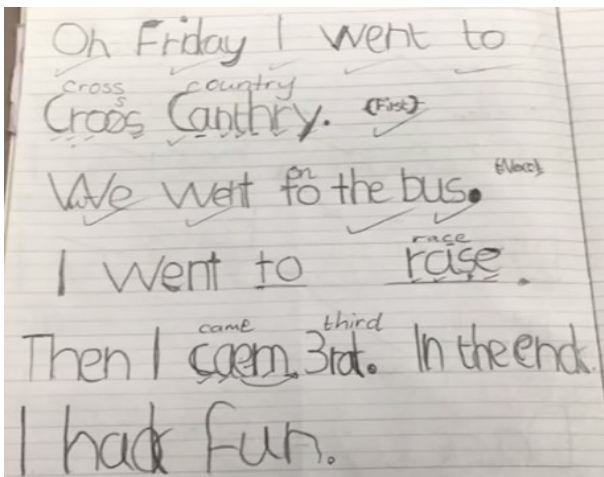 On Friday I went to
cross country
s
Croos Canthry. (First)
on (Next)
We went to the bus.
race
I went to raise.
came third
Then I caem 3rd. In the end.
I had fun.